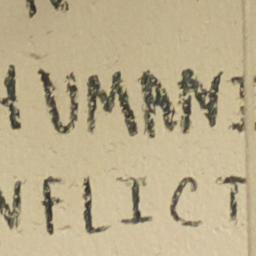 HUMAN
NFLICT